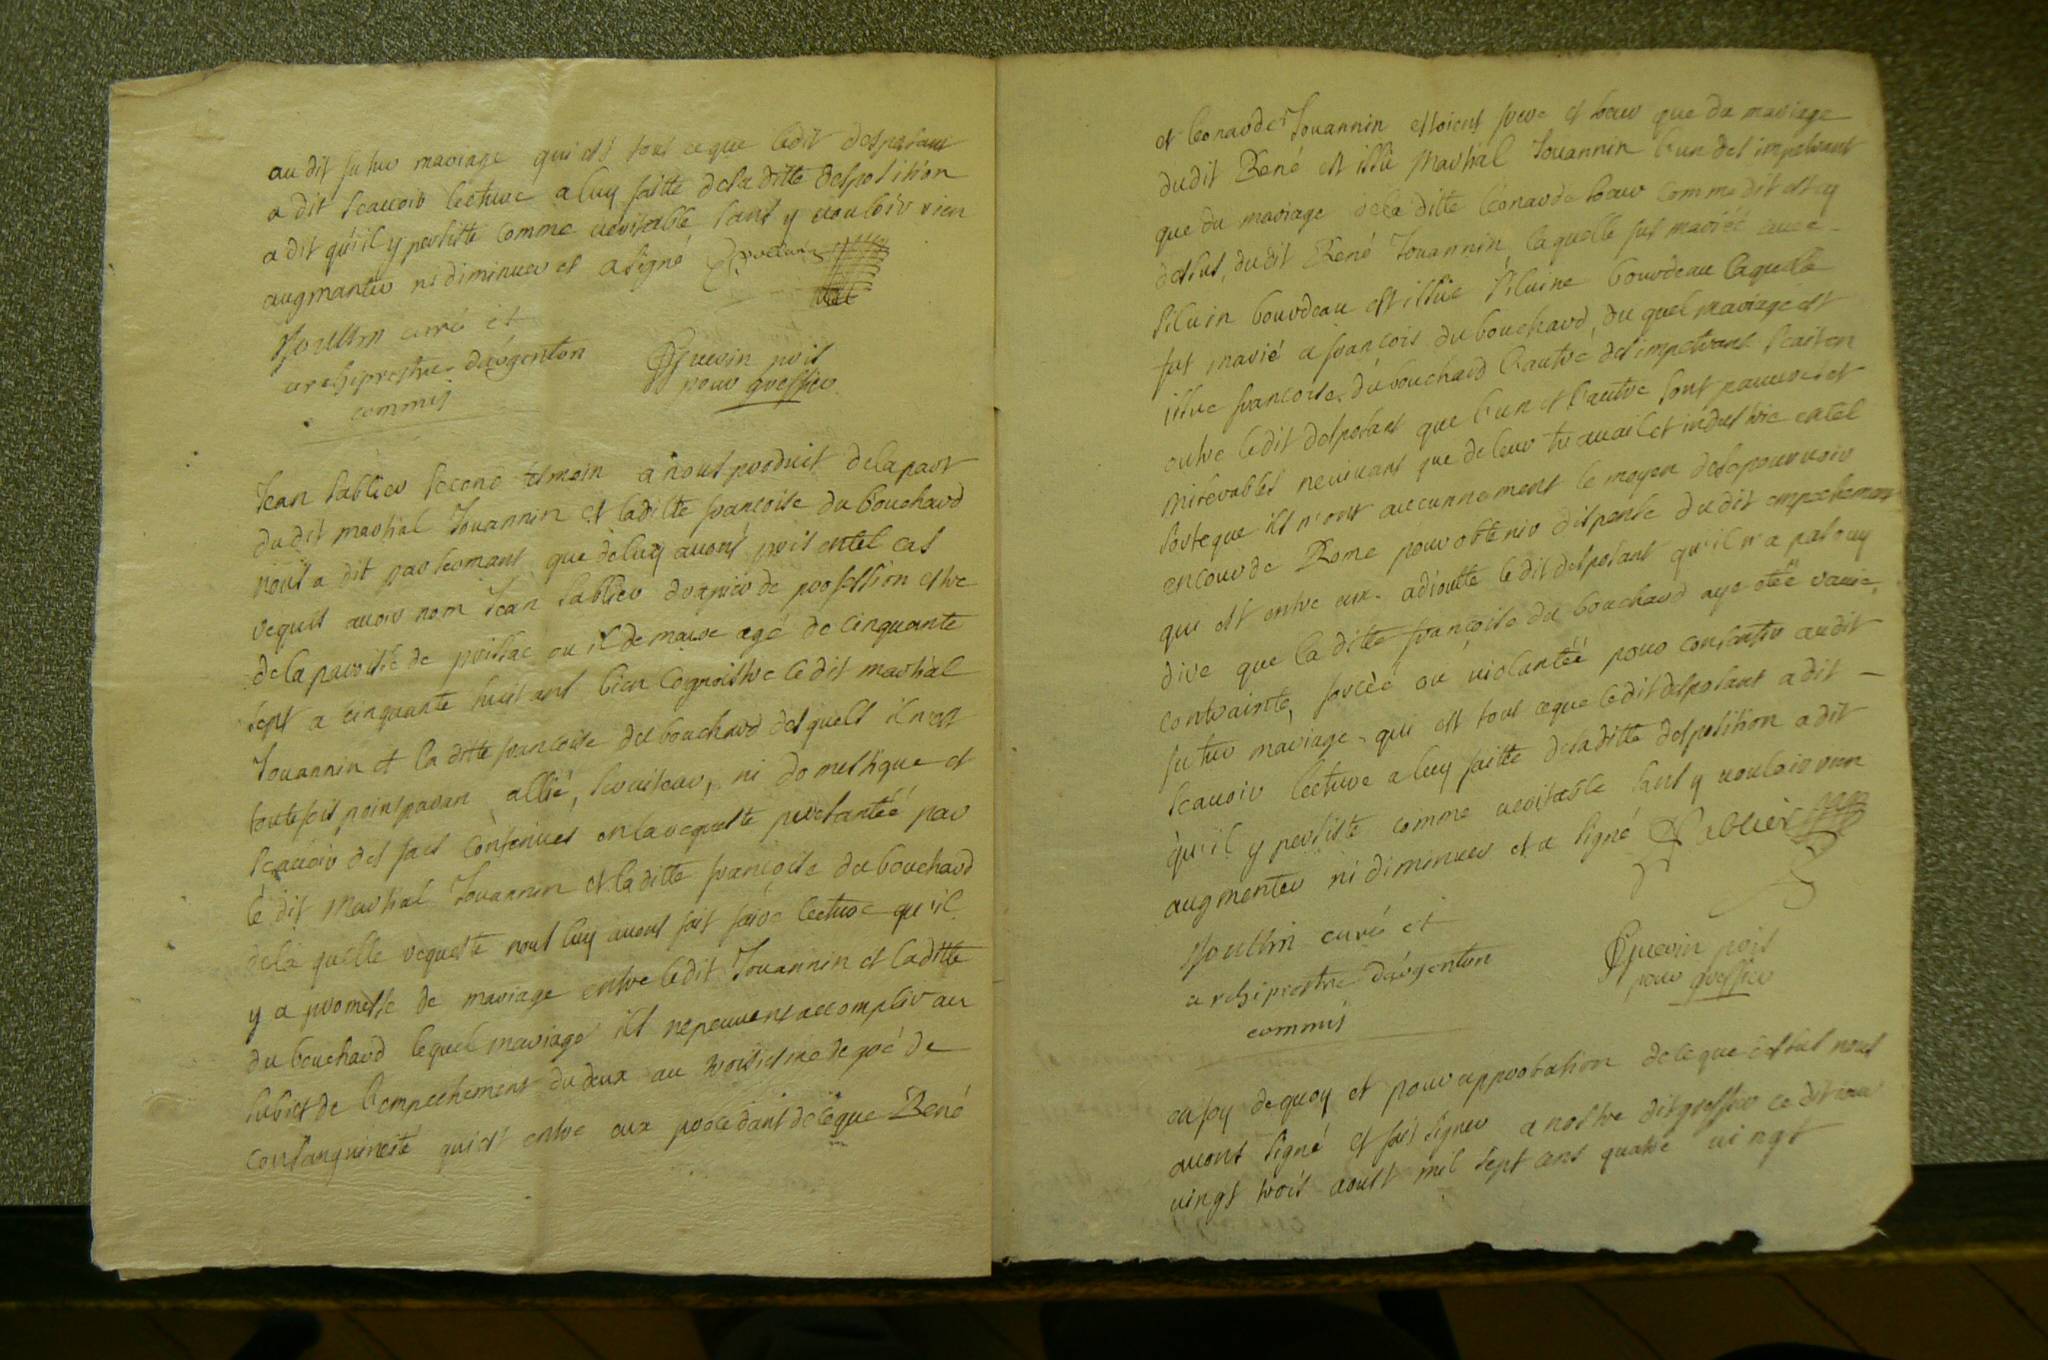 audit futur mariage qui est tous ce que ledit desposant
a dit scauoir lecture a luy faitte desa ditte desposition
a dit qu'il y persiste comme ueritable sans y uouloir rien
augmanter ni diminuer et a signé
curé et
archiprestre d'argenton
commis
Guerin pris
pour greffier
Jean Sablier second tesmoin a nous produit de la part
dudit martial Jouannin et laditte francoise du bouchard
nous a dit par sermant que de luy auons pris en tel cas
requis auoir nom Jean Sablier de profession estre
de la paroisse de prissac ou il demeure agé de cinquante
sept a cinquante huit ans bien cognoistre ledit martial
Jouannin et la ditte francoise du bouchard desquels il n'est
toutefois point paran allié, seruiteur, ni domestique et
scauoir des fais contenues en la requeste presantéé par
le dit Martial Jouannin et la ditte francoise du bouchard
de la quelle requeste nous luy auons fait faire lecture qu'il
y a promesse de mariage entre ledit Jouannin et laditte
du bouchard lequel mariage ils ne peuuent accomplir au
subiet de l'empechement du deux au troisiesme degré de
consanguinité qui est entre eux procedant de ce que René
et leonarde Jouannin estoient frere et soeur que du mariage
dudit René est issu Martial Jouannin l'un des impetrant
que du mariage de la ditte léonarde soeur comme dit est cy
dessus, dudit René Jouannin, laquelle fut mariéé auec
Siluin bourdeau est issue Siluine bourdeau laquelle
fut marié a francois du bouchard, du quel mariage est
issue francoise du bouchard l'autre des impetrant scait en
outre ledit desposant que l'un et l'autre sont pauures et
miserables ne uiuans que de leur trauail et industrie en tel
sorte que ils n'ont aucunnement le moyen de se pouruoir
en cour de Rome pour obtenir dispense dudit empechement
qui est entre eux. adioutte le dit desposant qu'il n'a pas ouy
dire que la ditte francoise du bouchard aye etéé rauie,
contrainte, forcéé ou uiolantéé pour consentir audit
futur mariage. qui est tous ce que ledit desposant a dit
scauoir lecture a luy faitte desa ditte desposition a dit
qu'il y persiste comme ueritable sans y uouloir rien
augmenter ni diminuer et a signé Sablier
curé et
archiprestre d'argenton
commis
Guerin pris
pour greffier
en foy de quoy et pour approbation de ce que dessus nous
auons signé et fait signer a nostre dit greffier ce dit iour
uingt trois aoust mil sept cens quatre uingt